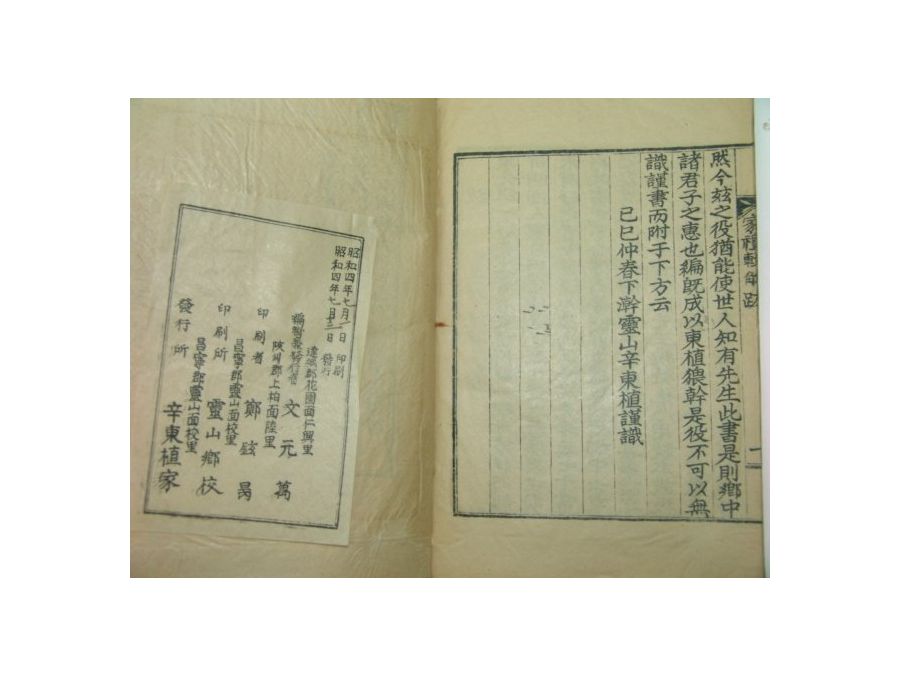 然今玆之役猶能使世人知有先生此書是則鄕中
諸君子之惠也編旣成以東植猥幹是役不可以無
識謹書而附于下方云
己巳仲春下澣靈山辛東植謹識
昭和四年七月 日 印刷
昭和四年七月 日 發行
達城郡花園面仁興里
編輯兼發行者 文元萬
陜川郡上栢面陸里
印刷者 鄭 昺
昌寧郡靈山面校里
印刷所 靈山鄕校
昌寧郡靈山面校里
發行所 辛東植家